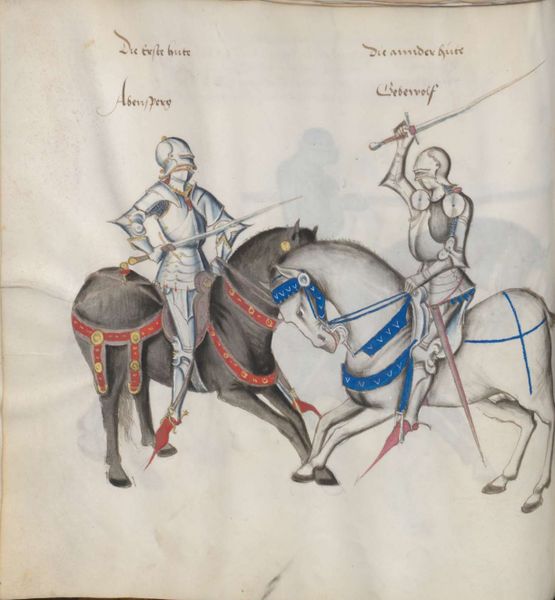 Die erste hute
Die annder hute
Abensperg
Geberwolf